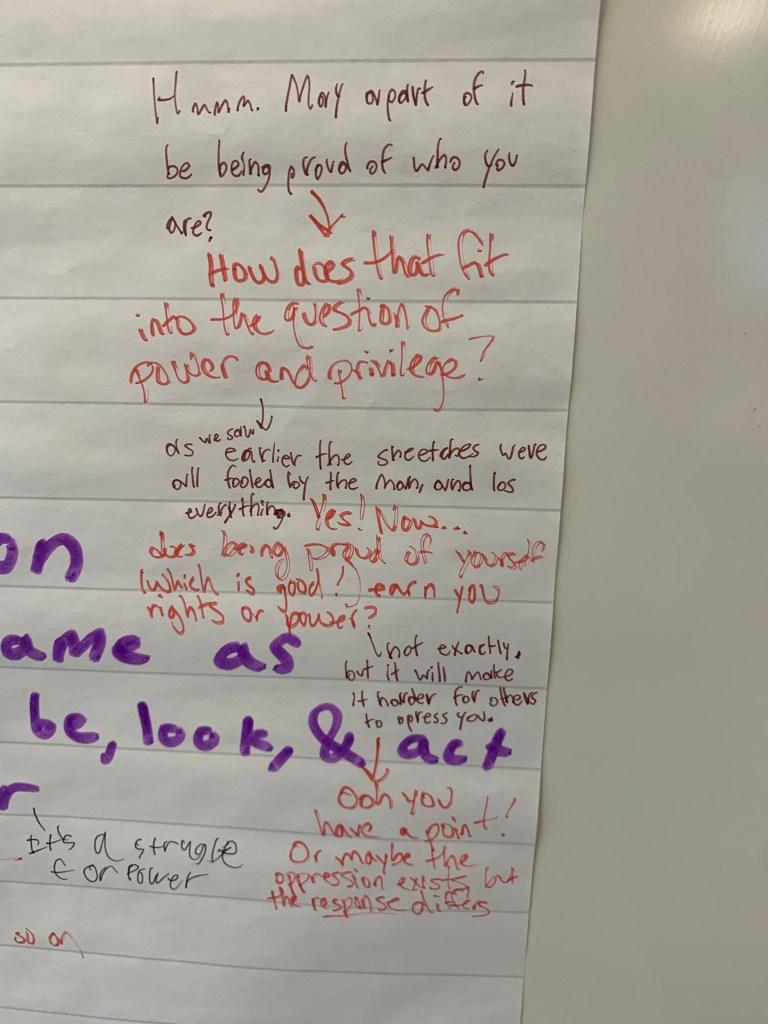 Hmmm. May apart of it
be being proud of who you
are?
How does that fit
into the question of
power and privilege?
as we saw earlier the sneetches were
all fooled by the man, and los
everything. Yes! Now...
does being proud of yourself
(which is good!) earn you
rights or power?
on
ame as
not exactly,
but it will make
it harder for others
to opress you.
be, look, & act
r
Ooh you
have a point!
Or maybe the
oppression exists, but
the response differs
It's a strugle
for power
so on